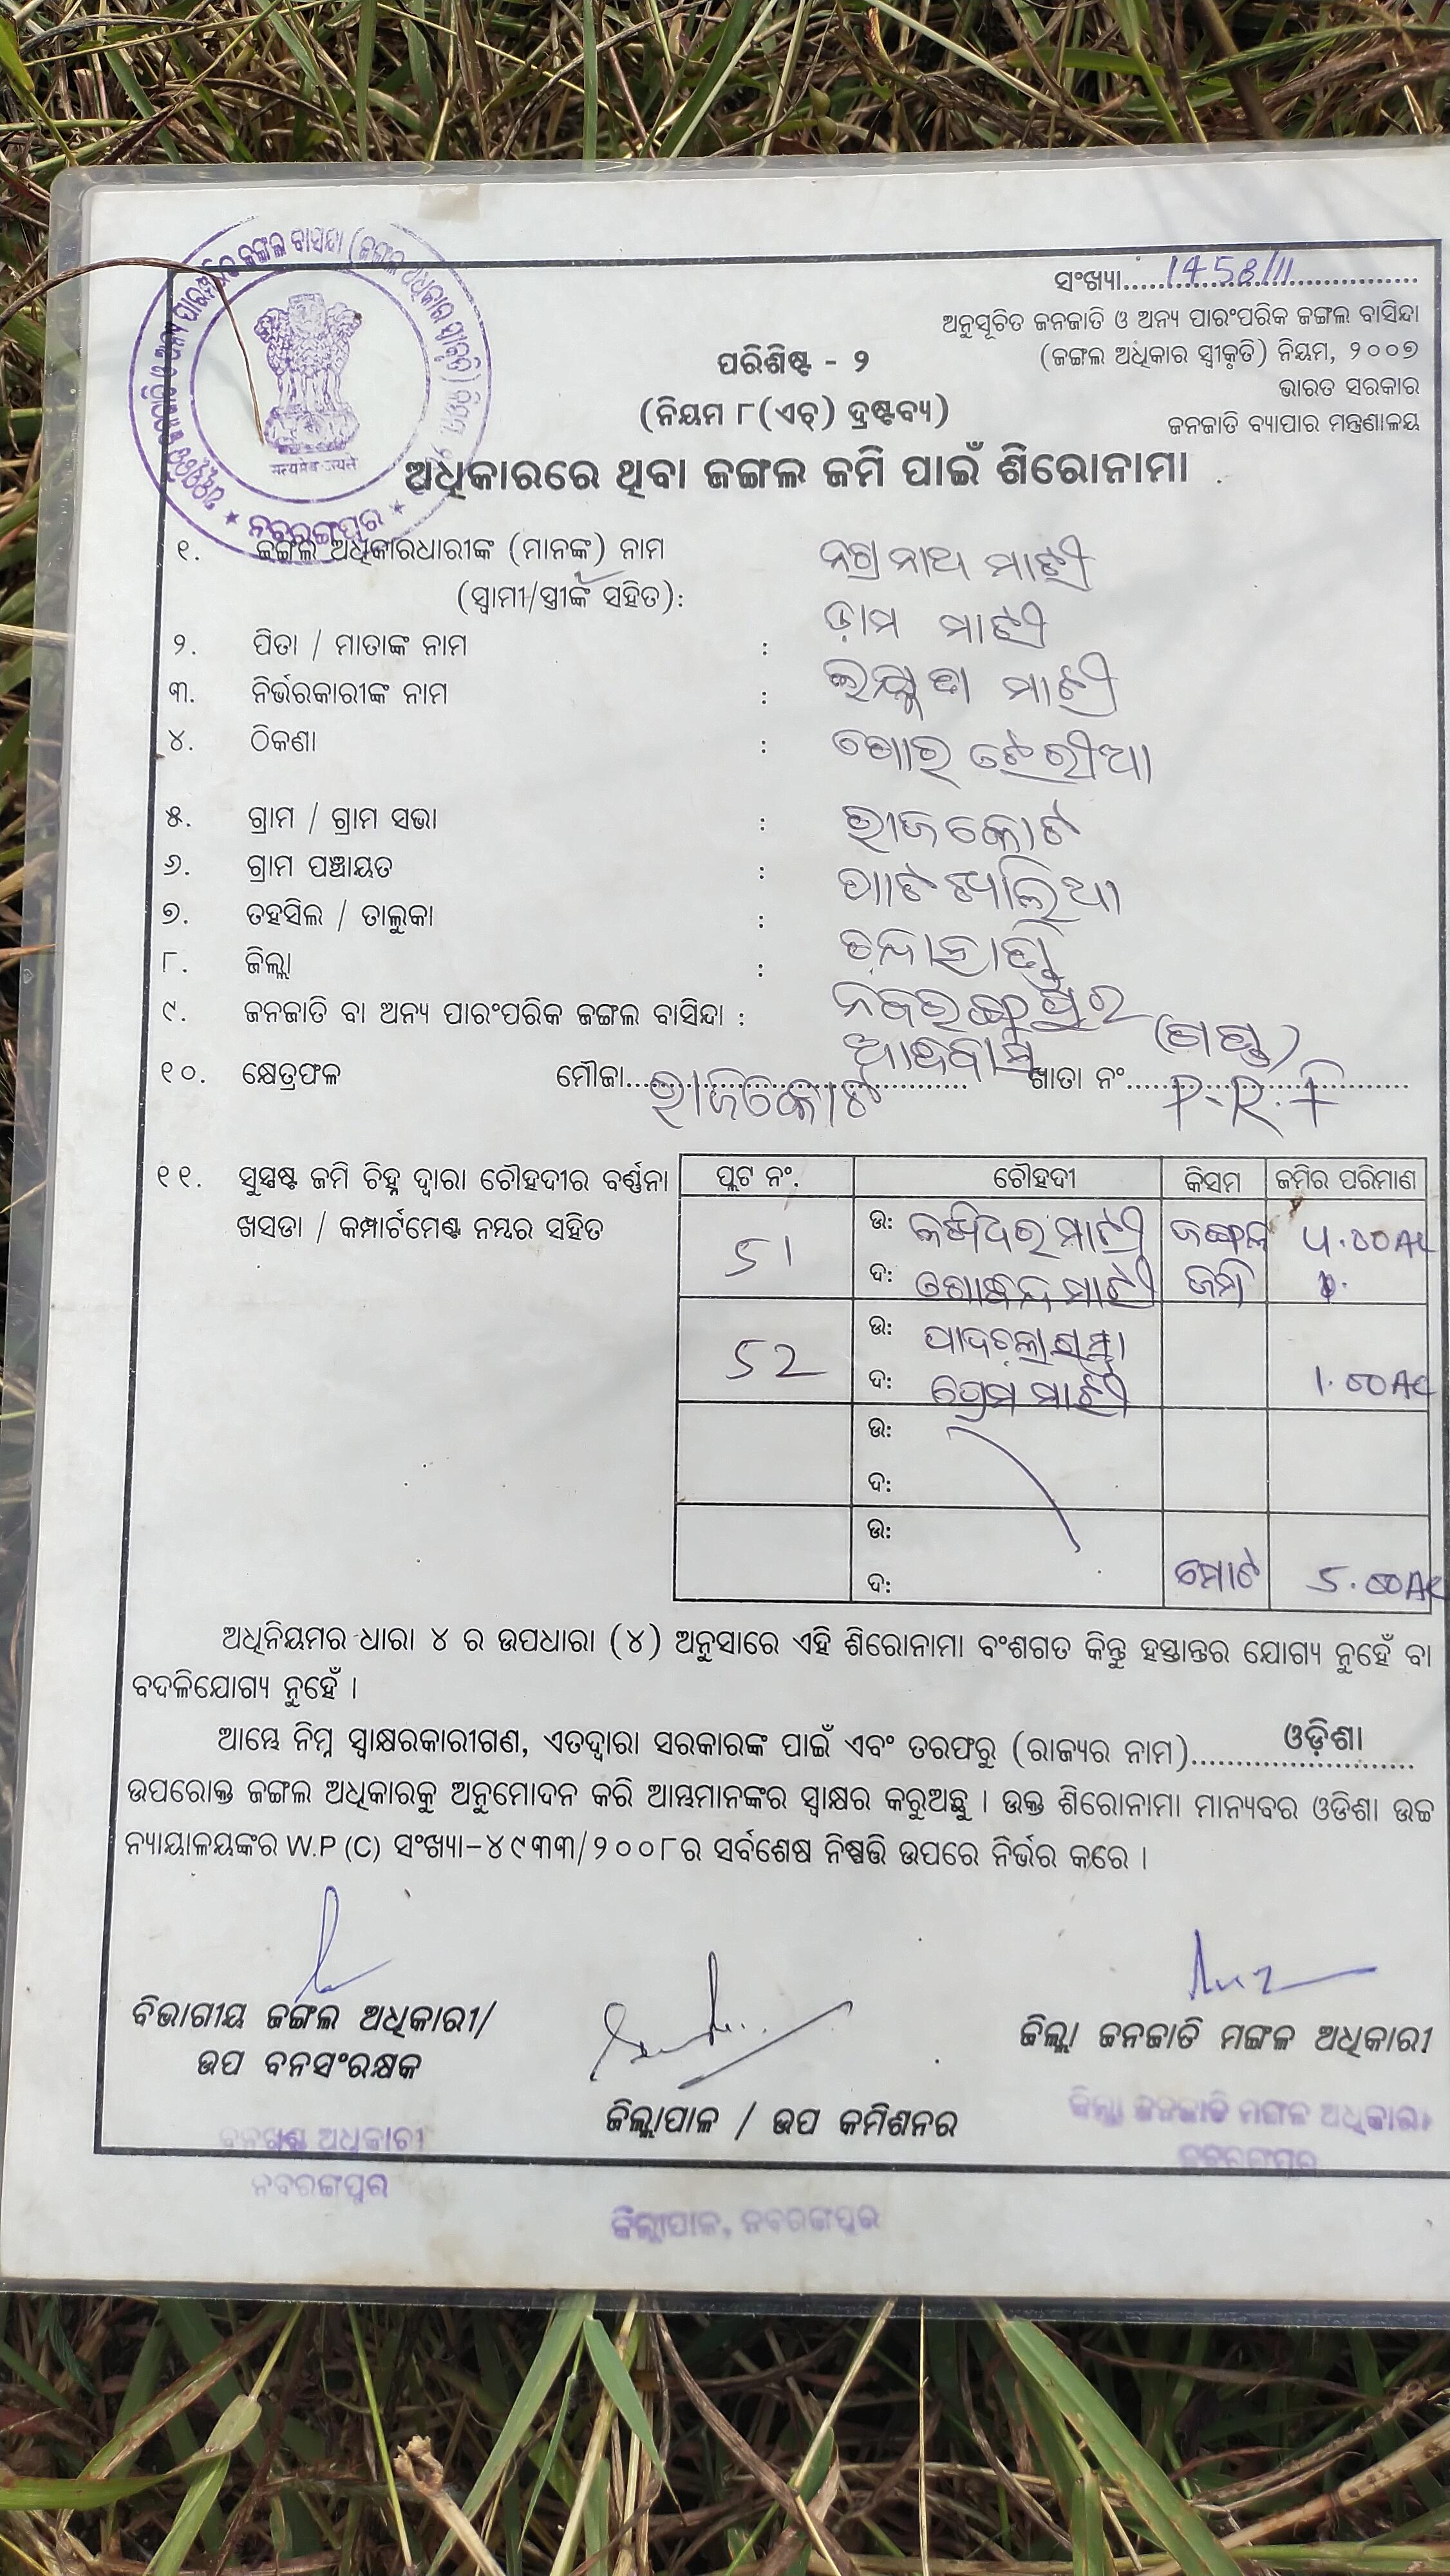 ସଂଖ୍ୟା........1458/11........
ଅନୁସୂଚିତ ଜନଜାତି ଓ ଅନ୍ୟ ପାରଂପରିକ ଜଙ୍ଗଲ ବାସିନ୍ଦା
(ଜଙ୍ଗଲ ଅଧିକାର ସ୍ୱୀକୃତି) ନିୟମ, ୨୦୦୭
ଭାରତ ସରକାର
ଜନଜାତି ବ୍ୟାପାର ମନ୍ତ୍ରଣାଳୟ
ପରିଶିଷ୍ଟ - ୨
(ନିୟମ ୮(ଏଚ୍) ଦ୍ରଷ୍ଟବ୍ୟ)
सत्यमेव जयते
ନବରଙ୍ଗପୁର
ଅଧିକାରରେ ଥିବା ଜଙ୍ଗଲ ଜମି ପାଇଁ ଶିରୋନାମା
୧. ଜଙ୍ଗଲ ଅଧିକାରଧାରୀଙ୍କ (ମାନଙ୍କ) ନାମ
(ସ୍ୱାମୀ/ସ୍ତ୍ରୀଙ୍କ ସହିତ):
୨. ପିତା / ମାତାଙ୍କ ନାମ :
୩. ନିର୍ଭରକାରୀଙ୍କ ନାମ :
୪. ଠିକଣା :
୫. ଗ୍ରାମ / ଗ୍ରାମ ସଭା : ରାଜକୋଟ
୬. ଗ୍ରାମ ପଞ୍ଚାୟତ :
୭. ତହସିଲ / ତାଲୁକା :
୮. ଜିଲ୍ଲା :
୯. ଜନଜାତି ବା ଅନ୍ୟ ପାରଂପରିକ ଜଙ୍ଗଲ ବାସିନ୍ଦା : (ଗଣ୍ଡ)
୧୦. କ୍ଷେତ୍ରଫଳ ମୌଜା........ରାଜକୋଟ........ ଖାତା ନଂ........P.R.F
୧୧. ସୁସ୍ପଷ୍ଟ ଜମି ଚିହ୍ନ ଦ୍ୱାରା ଚୌହଦୀର ବର୍ଣ୍ଣନା
ଖସଡା / କମ୍ପାର୍ଟମେଣ୍ଟ ନମ୍ବର ସହିତ
ପ୍ଲଟ ନଂ. ଚୌହଦୀ କିସମ ଜମିର ପରିମାଣ
51 ଉ: ମାଝୀ ଜଙ୍ଗଲ 4.00AC
ଦ: ଗୋବିନ୍ଦ ମାଝୀ ଜମି
52 ଉ:
ଦ: ପ୍ରେମ ମାଝୀ 1.00AC
ଉ:
ଦ:
ଉ:
ଦ: ମୋଟ 5.00AC
ଅଧିନିୟମର ଧାରା ୪ ର ଉପଧାରା (୪) ଅନୁସାରେ ଏହି ଶିରୋନାମା ବଂଶଗତ କିନ୍ତୁ ହସ୍ତାନ୍ତର ଯୋଗ୍ୟ ନୁହେଁ ବା
ବଦଳିଯୋଗ୍ୟ ନୁହେଁ ।
ଆମ୍ଭେ ନିମ୍ନ ସ୍ୱାକ୍ଷରକାରୀଗଣ, ଏତଦ୍ୱାରା ସରକାରଙ୍କ ପାଇଁ ଏବଂ ତରଫରୁ (ରାଜ୍ୟର ନାମ)........ଓଡ଼ିଶା........
ଉପରୋକ୍ତ ଜଙ୍ଗଲ ଅଧିକାରକୁ ଅନୁମୋଦନ କରି ଆମ୍ଭମାନଙ୍କର ସ୍ୱାକ୍ଷର କରୁଅଛୁ । ଉକ୍ତ ଶିରୋନାମା ମାନ୍ୟବର ଓଡିଶା ଉଚ୍ଚ
ନ୍ୟାୟାଳୟଙ୍କର W.P (C) ସଂଖ୍ୟା-୪୯୩୩/୨୦୦୮ର ସର୍ବଶେଷ ନିଷ୍ପତ୍ତି ଉପରେ ନିର୍ଭର କରେ ।
ବିଭାଗୀୟ ଜଙ୍ଗଲ ଅଧିକାରୀ/
ଉପ ବନସଂରକ୍ଷକ
ଜିଲ୍ଲାପାଳ / ଉପ କମିଶନର
ଜିଲ୍ଲା ଜନଜାତି ମଙ୍ଗଳ ଅଧିକାରୀ
ବନଖଣ୍ଡ ଅଧିକାରୀ
ନବରଙ୍ଗପୁର
ଜିଲ୍ଲାପାଳ, ନବରଙ୍ଗପୁର
ଜିଲ୍ଲା ଜନଜାତି ମଙ୍ଗଳ ଅଧିକାରୀ
ନବରଙ୍ଗପୁର